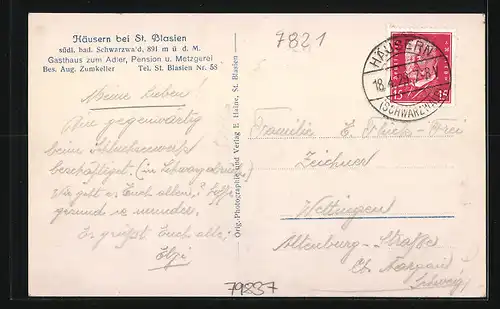 Häusern bei St. Blasien
südl. bad. Schwarzwald, 891 m ü d. M.
Gasthaus zum Adler, Pension u. Metzgerei
Bes. Aug. Zumkeller Tel. St. Blasien Nr. 58
7821
HÄUSERN
(SCHWARZW
15 15
Meine Lieben!
Bin gegenwärtig
beim Schluchseewerk
beschäftiget. (in Schwarzabruck)
Wie geht es Euch allen?
gesund
Es grüßst Euch alle,
Orig.-Photographie und Verlag E. Haine, St. Blasien
Familie E.
Zeichner
Wettingen
Altenburg-Straße
Ct. Aargau
Schweiz
79837